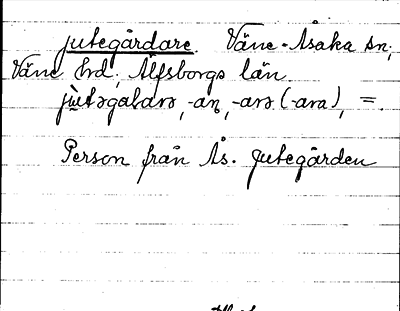 jutegårdare. Väne-Åsaka sn;
Väne hrd; Älfsborgs län
jùtəgaları, -an, -arə (-ara), =.
Person från Ås. Jutegården